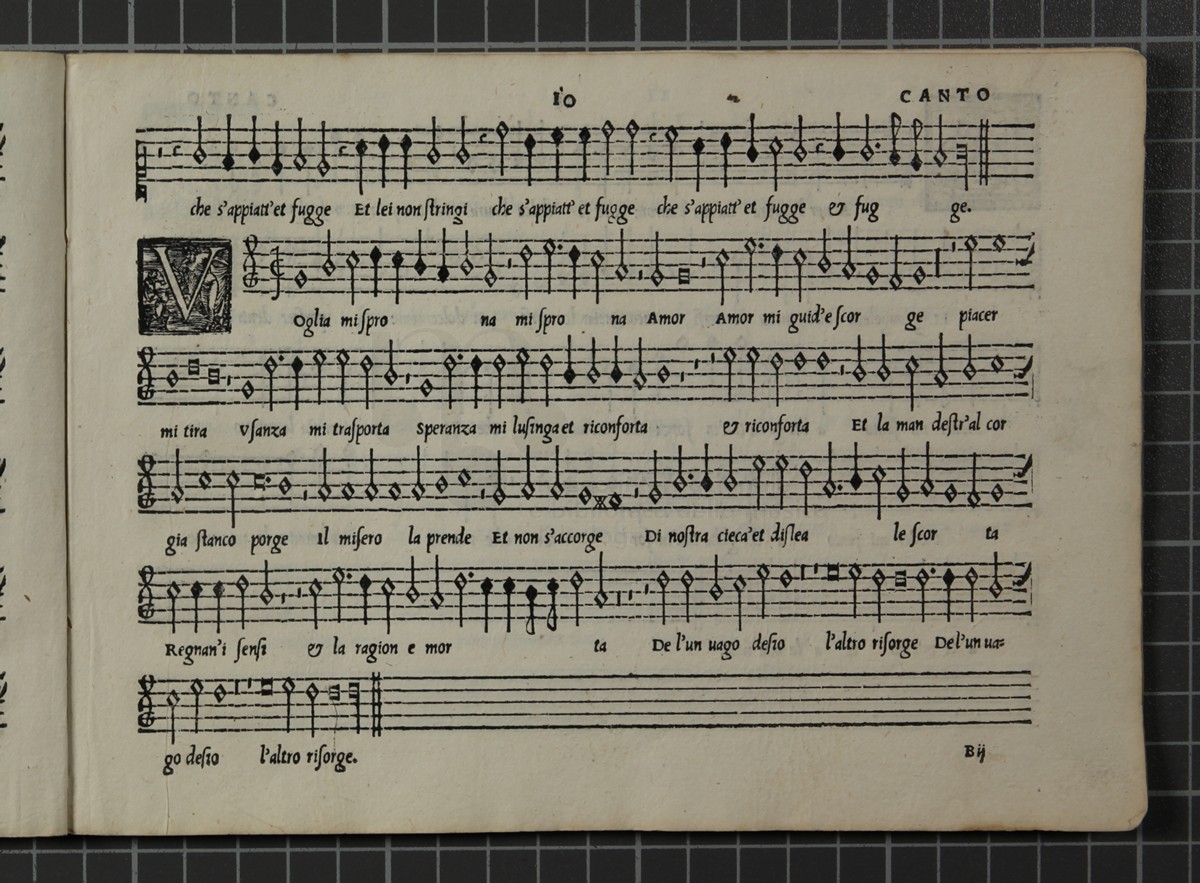 10 CANTO
che s'appiatt'et fugge Et lei non stringi che s'appiatt'et fugge che s'appiatt'et fugge & fug ge.
VOglia mi spro na mi spro na Amor Amor mi guid'e scor ge piacer
mi tira Vsanza mi trasporta Speranza mi lusinga et riconforta & riconforta Et la man destr'al cor
gia stanco porge Il misero la prende Et non s'accorge Di nostra cieca'et dislea le scor ta
Regnan'i sensi & la ragion e mor ta De l'un uago desio l'altro risorge De l'un ua=
go desio l'altro risorge.
Bij